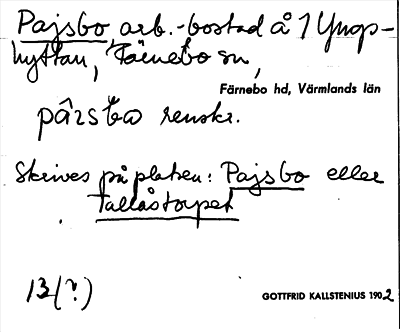 Pajsbo, arb.-bostad å 1 Yngs-
hyttan, Färnebo sn,
Färnebo hd, Värmlands län
renskr.
Skrives på platsen: Pajsbo eller
Tallåstorpet
13(?)
GOTTFRID KALLSTENIUS 1902